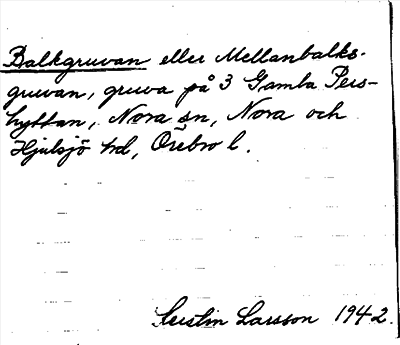 Balkgruvan eller Mellanbalks-
gruvan, gruva på 3 Gamla Pers-
hyttan, Nora sn, Nora och
Hjulsjö hd, Örebro l.
Kerstin Larsson 1942.